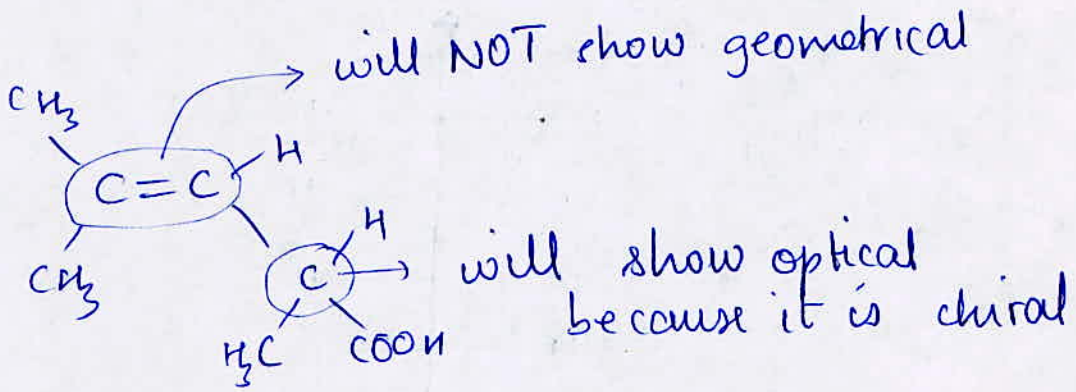 will NOT show geometrical
CH3
H
C=C
CH3
H
C
will show optical
because it is chiral
H3C
COOH